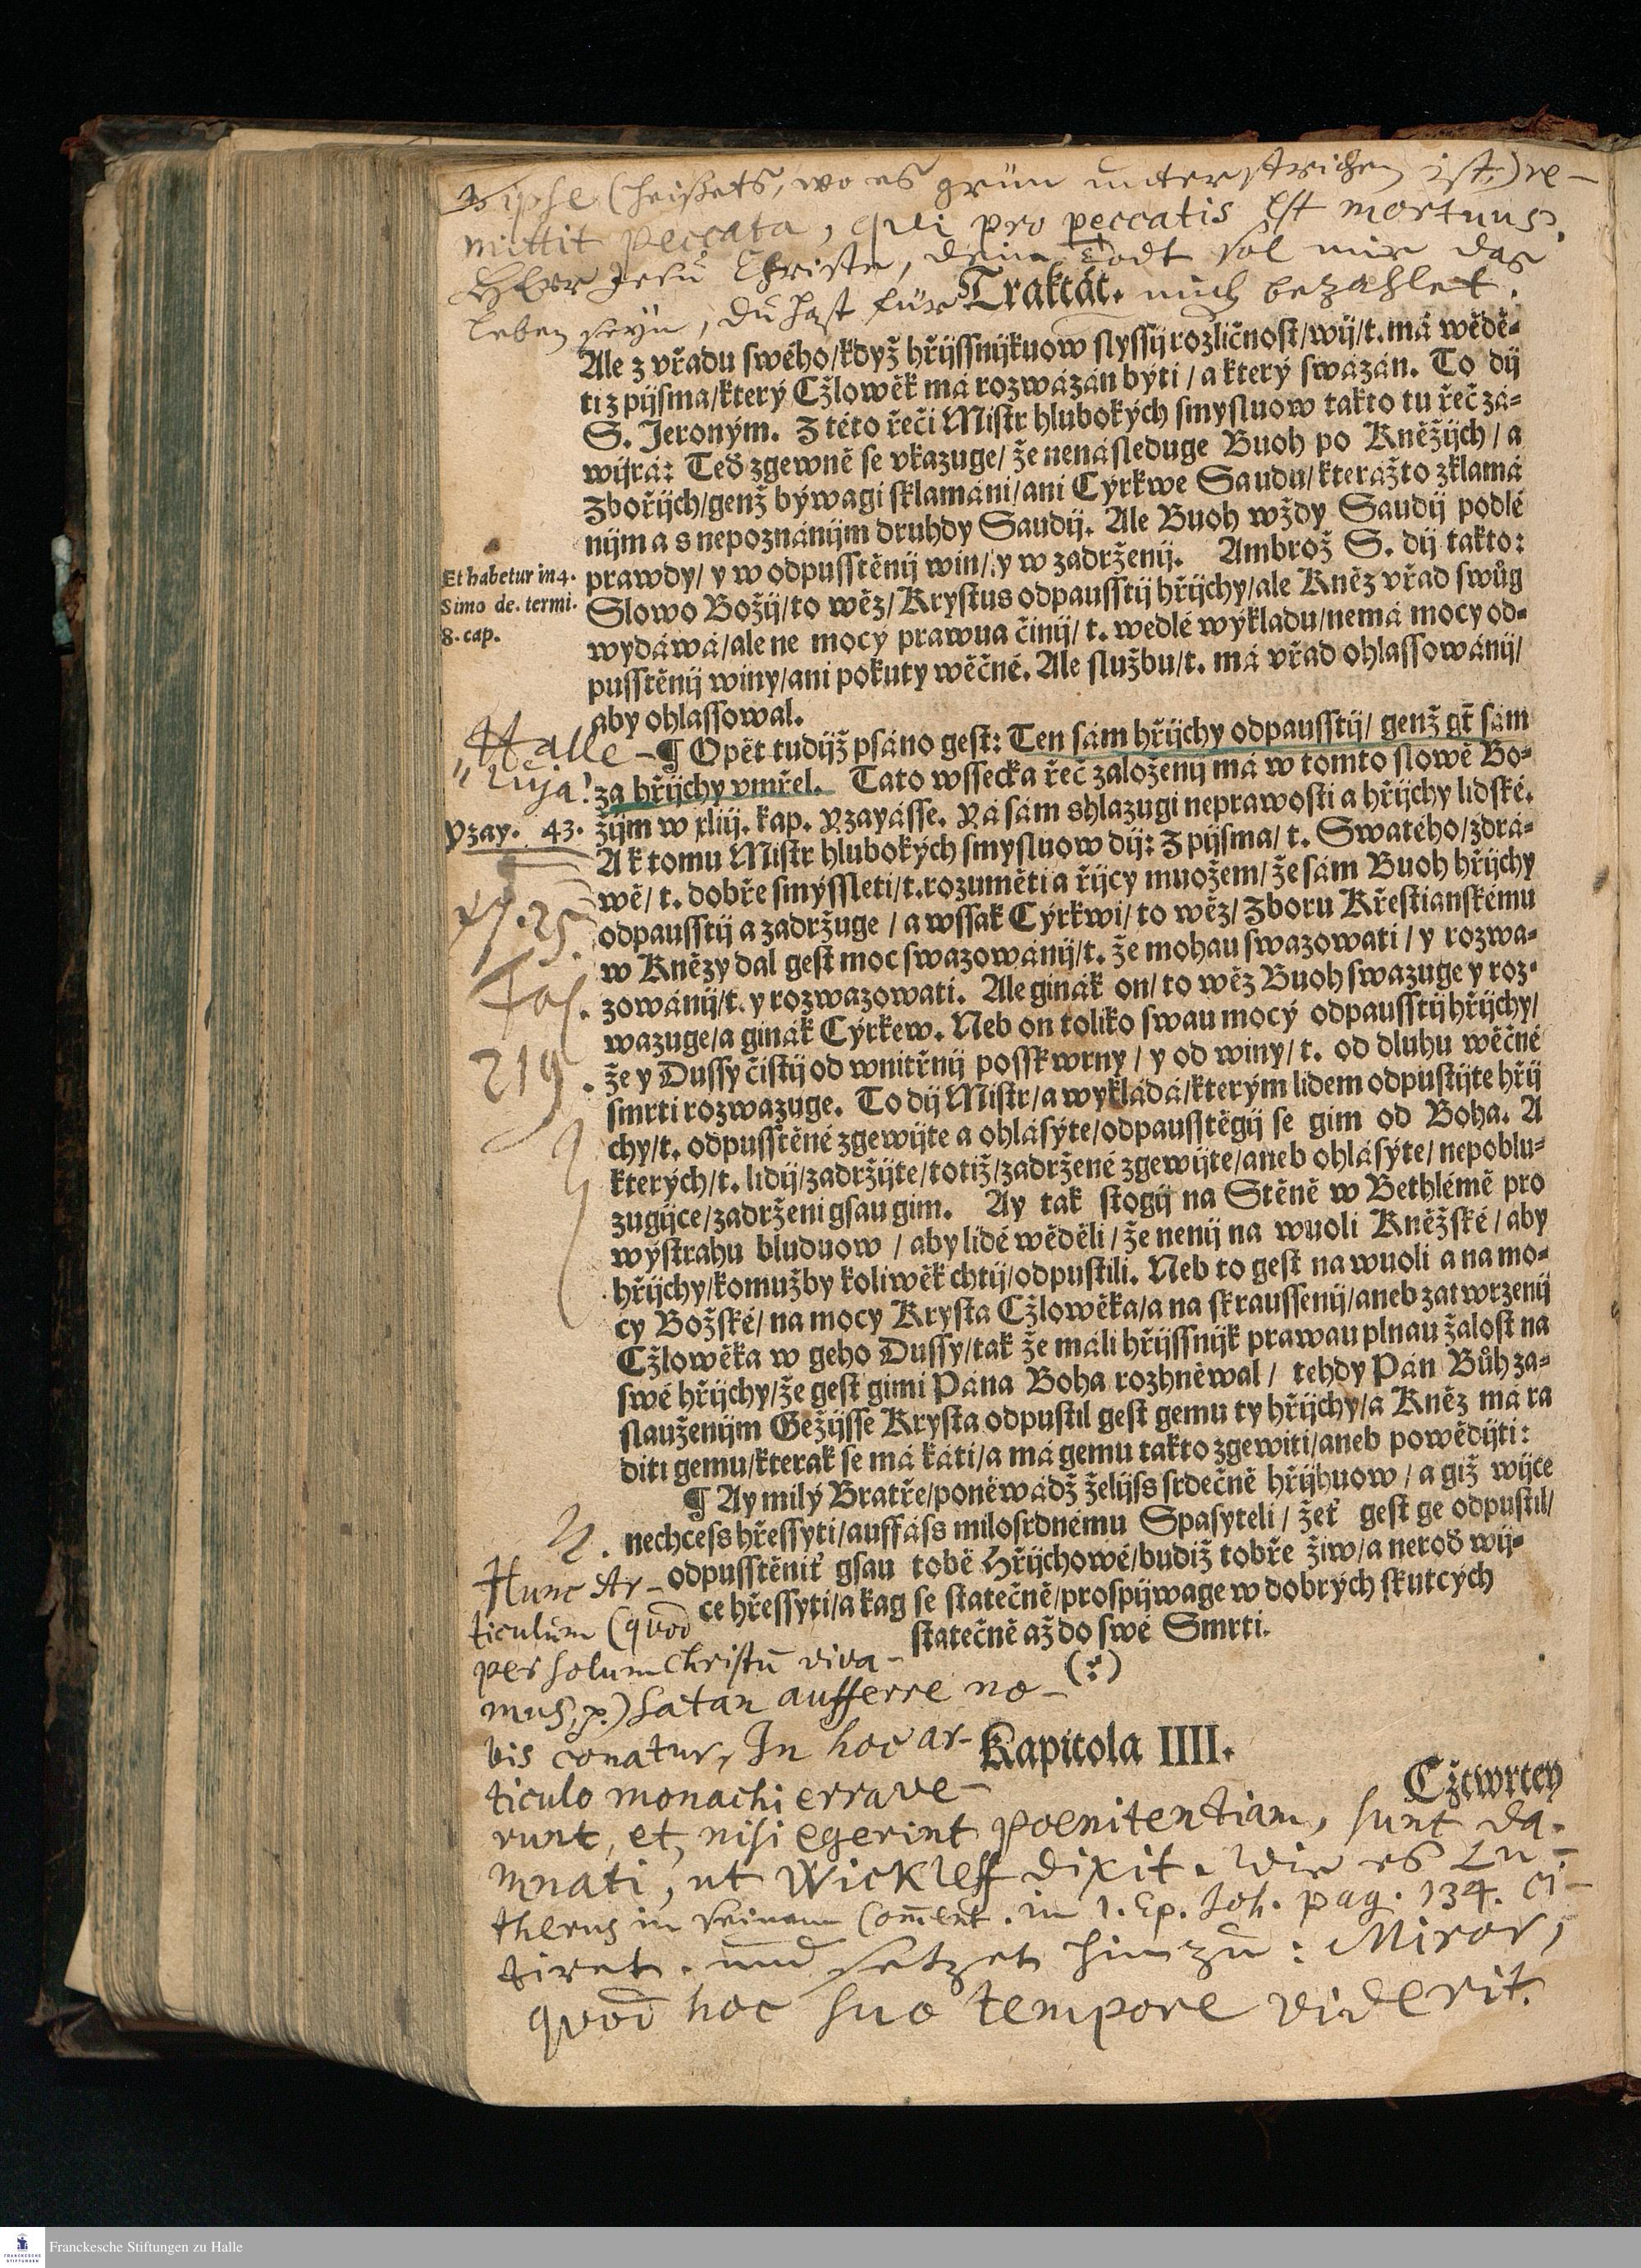 ipse (heißets, wo es grün unterstrichen ist,) re-
mittit peccata, qvi pro peccatis est mortuus.
HErr Jesu Christe, dein Todt sol mir das
Leben seyn, du hast für mich bezahlet.
Traktát.
Ale z vřadu swého/když hřijssnijkuow slyssij rozličnost/wij/t. má wědě-
ti z pijsma/který Cžlowěk má rozwázán býti/a který swázán. To dij
S. Jeroným. Z této řeči Mistr hlubokých smysluow takto tu řeč za-
wijrá: Teď zgewně se vkazuge/že nenásleduge Buoh po Kněžijch/a
Zbořijch/genž býwagi sklamáni/ani Cýrkwe Saudu/kterážto zklamá
nijm a s nepoznánijm druhdy Saudij. Ale Buoh wždy Saudij podlé
prawdy/y w odpusstěnij win/y w zadrženij. Ambrož S. dij takto:
Et habetur in 4.
Simo de. termi.
8. cap.
Slowo Božij/to wěz/Krystus odpausstij hřijchy/ale Kněz vřad swůg
wydáwá/ale ne mocý prawua činij/t. wedlé wýkladu/nemá mocy od-
pusstěnij winy/ani pokuty wěčné. Ale službu/t. má vřad ohlassowánij/
aby ohlassowal.
Halle-
luja!
¶ Opět tudijž psáno gest: Ten sám hřijchy odpausstij/genž gt sám
za hřijchy vmřel. Tato wssecka řeč založenij má w tomto slowě Bo-
Yzay. 43.
žijm w xliij. kap. Yzayásse. Já sám shlazugi neprawosti a hřijchy lidské.
A k tomu Mistr hlubokých smysluow dij: Z pijsma/t. Swatého/zdrá-
wě/t. dobře smýssleti/t. rozuměti a řijcy muožem/že sám Buoh hřijchy
odpausstij a zadržuge/a wssak Cýrkwi/to wěz/Zboru Křestianskému
w Knězy dal gest moc swazowánij/t. že mohau swazowati/y rozwa-
zowánij/t. y rozwazowati. Ale ginák on/to wěz Buoh swazuge y roz-
wazuge/a ginák Cýrkew. Neb on toliko swau mocý odpausstij hřijchy/
že y Dussy čistij od wnitřnij posskwrny/y od winy/t. od dluhu wěčné
smrti rozwazuge. To dij Mistr/a wykládá/kterým lidem odpustijte hřij
chy/t. odpusstěné zgewijte a ohlásýte/odpausstěgij se gim od Boha. A
kterých/t. lidij/zadržijte/totiž/zadržené zgewijte/aneb ohlásýte/nepoblu-
zugijce/zadrženi gsau gim. Ay tak stogij na Stěně w Bethlémě pro
wýstrahu bluduow/aby lidé wěděli/že nenij na wuoli Kněžské/aby
hřijchy/komužby koliwěk chtij/odpustili. Neb to gest na wuoli a na mo-
cy Božské/na mocy Krysta Cžlowěka/a na skraussenij/aneb zatwrzenij
Cžlowěka w geho Dussy/tak že máli hřijssnijk prawau plnau žalost na
swé hřijchy/že gest gimi Pána Boha rozhněwal/tehdy Pán Bůh za-
slauženijm Gežijsse Krysta odpustil gest gemu ty hřijchy/a Kněz má ra
diti gemu/kterak se má káti/a má gemu takto zgewiti/aneb powědijti:
219.
¶ Ay milý Bratře/poněwádž želijss srdečně hřijhuow/a giž wijce
nechcess hřessyti/auffáss milosrdnému Spasyteli/žeť gest ge odpustil/
odpusstěniť gsau tobě Hřijchowé/budiž tobře žiw/a neroď wij-
ce hřessyti/a kag se statečně/prospijwage w dobrých skutcých
statečně až do swé Smrti.
(:)
Kapitola IIII.
Cžtwrtey
Hunc Ar-
ticulum (qvod
per solum Christū viva-
mus, p.) Satan aufferre no-
bis conatur, In hoc ar-
ticulo monachi errave-
runt, et, nisi egerint poenitentiam, sunt da-
mnati, ut Wickleff dixit. Wie es Lu-
therus in seinem Com̄ent. in 1. Ep. Joh. pag. 134. ci-
tiret. und setzet hinzu: Miror,
qvod hoc suo tempore viderit.